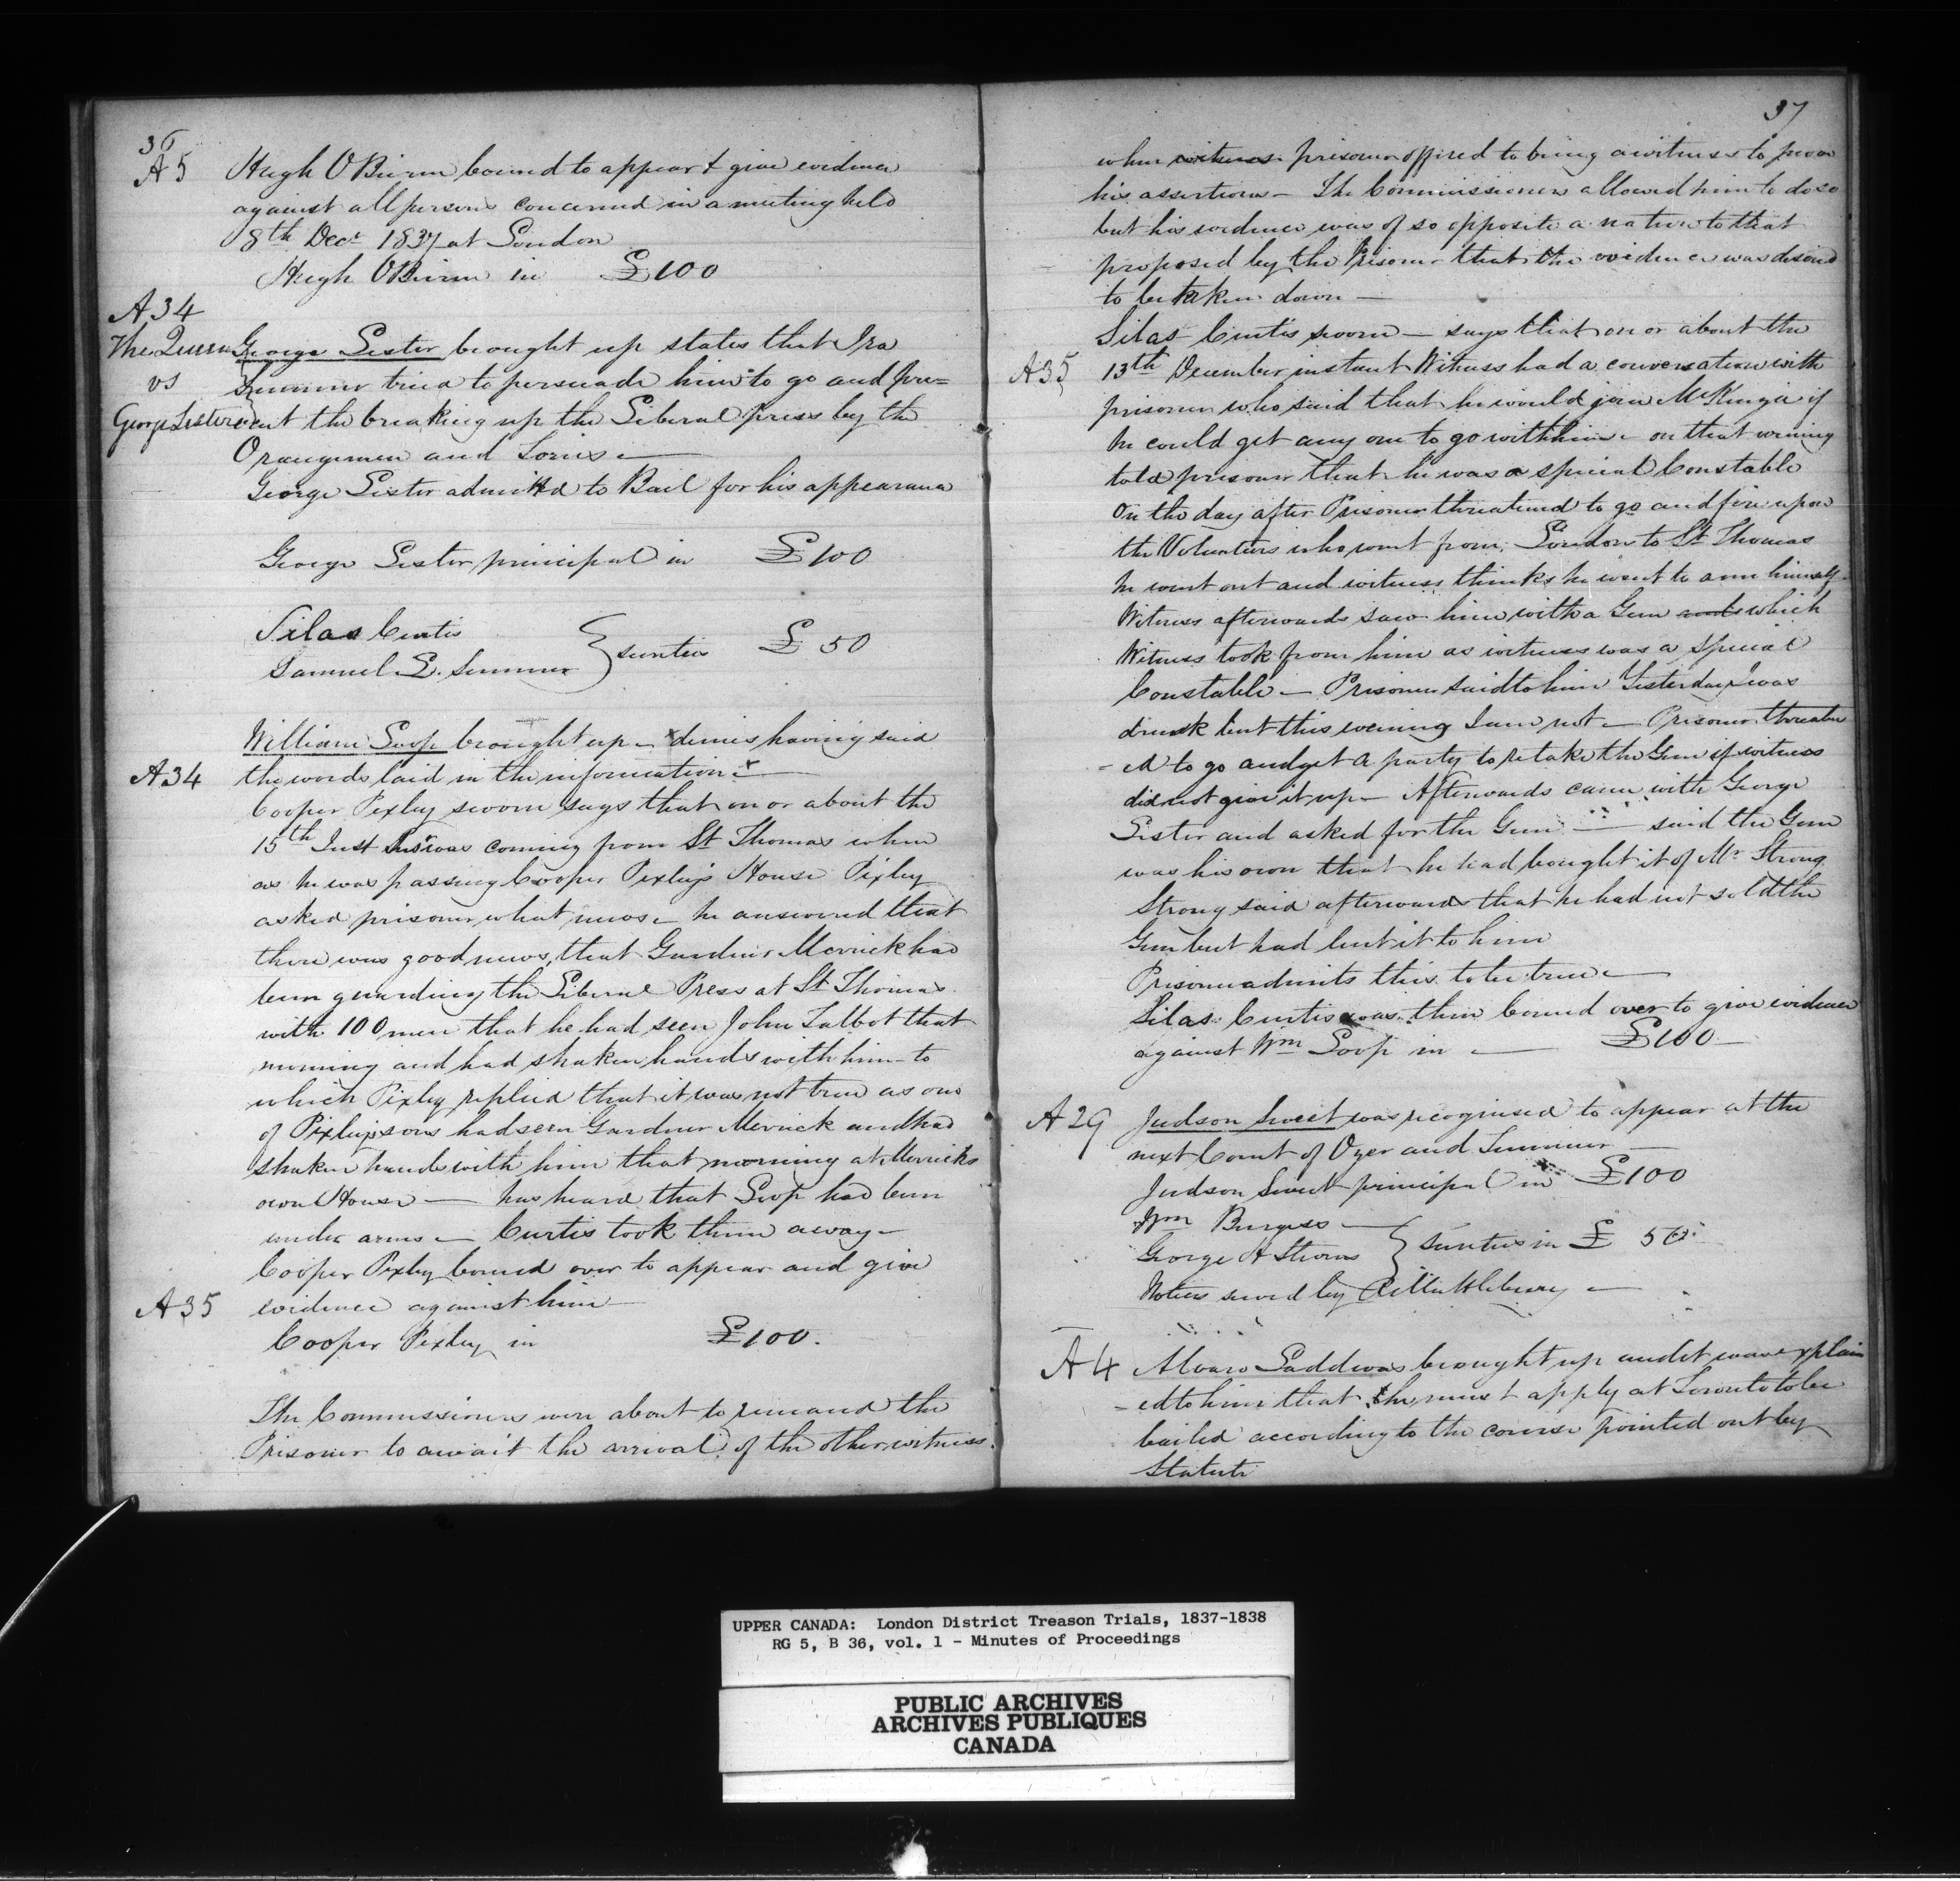 36
A5 Hugh OBeirn bound to appear & give evidence
against all persons concerned in a meeting held
8th Decr 1837 at London
Hugh OBeirn in £100
A34
The Queen
vs
George Lester
George Lester brought up states that Ira
Summer tried to persuade him to go and pre=
vent the breaking up the Liberal Press by the
Orangemen and Tories —
George Lester admitted to Bail for his appearance
George Lester principal in £100
Silas Curtis
Samuel L. Summer } sureties £50
William Soop brought up – denies having said
A34 the words laid in the information —
Cooper Pixley sworn says that on or about the
15th Inst Prisr was coming from St Thomas when
as he was passing Cooper Pixley's House Pixley
asked prisoner what news – he answered that
there was good news, that Gardner Merrick had
been guarding the Liberal Press at St Thomas
with 100 men that he had seen John Talbot that
morning and had shaken hands with him – to
which Pixley replied that it was not true as one
of Pixleys sons had seen Gardner Merrick and had
shaken hands with him that morning at Merricks
own House — has heard that Soop had been
under arms – Curtis took them away –
Cooper Pixley bound over to appear and give
A35 evidence against him
Cooper Pixley in £100.
The Commissioners were about to remand the
Prisoner to await the arrival of the other witness.
37
when witness prisoner offired to bring a witness to prove
his assertions – The Commissioners allowed him to do so
but his evidence was of so opposite a nature to that
proposed by the Prisoner that the evidence was desired
to be taken down —
Silas Curtis sworn – says that on or about the
A35 13th December instant Witness had a conversation with
prisoner who said that he would join McKenzie if
he could get any one to go with him – on that evening
told prisoner that he was a special Constable
On the day after Prisoner threatened to go and fire upon
the Volunteers who went from London to St Thomas
he went out and witness thinks he went to arm himself
Witness afterwards saw him with a Gun and which
Witness took from him as witness was a Special
Constable – Prisoner said to him Yesterday I was
drunk but this evening I am not – Prisoner threaten
-ed to go and get a party to retake the Gun if witness
did not give it up – Afterwards came with George
Lester and asked for the Gun — said the Gun
was his own that he had bought it of Mr Strong
Strong said afterwards that he had not sold the
Gun but had lent it to him
Prisoner admits this to be true –
Silas Curtis was then bound over to give evidence
against Wm Soop in — £100 –
A29 Judson Sweet was recognised to appear at the
next Court of Oyer and Terminer –
Judson Sweet principal in £100
Wm Burgess –
George A Sterns } Sureties in £ 50
Notices served by –
A4 Alvaro Ladd was brought up and it was explain
-ed to him that he must apply at Toronto to be
bailed according to the course pointed out by
Statute
UPPER CANADA: London District Treason Trials, 1837-1838
RG 5, B 36, vol. 1 - Minutes of Proceedings
PUBLIC ARCHIVES
ARCHIVES PUBLIQUES
CANADA